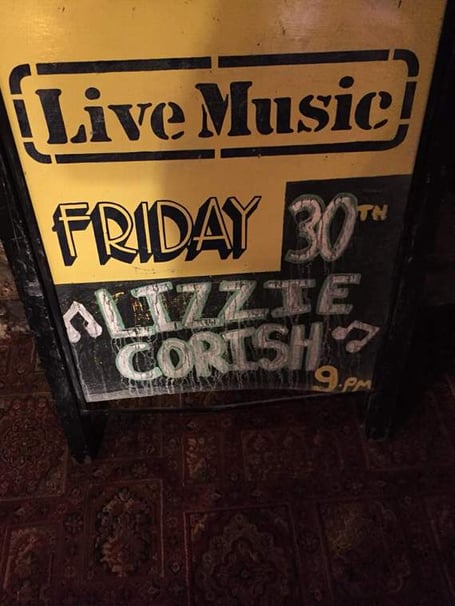 Live Music
FRIDAY 30TH
LIZZIE
CORISH
9.PM